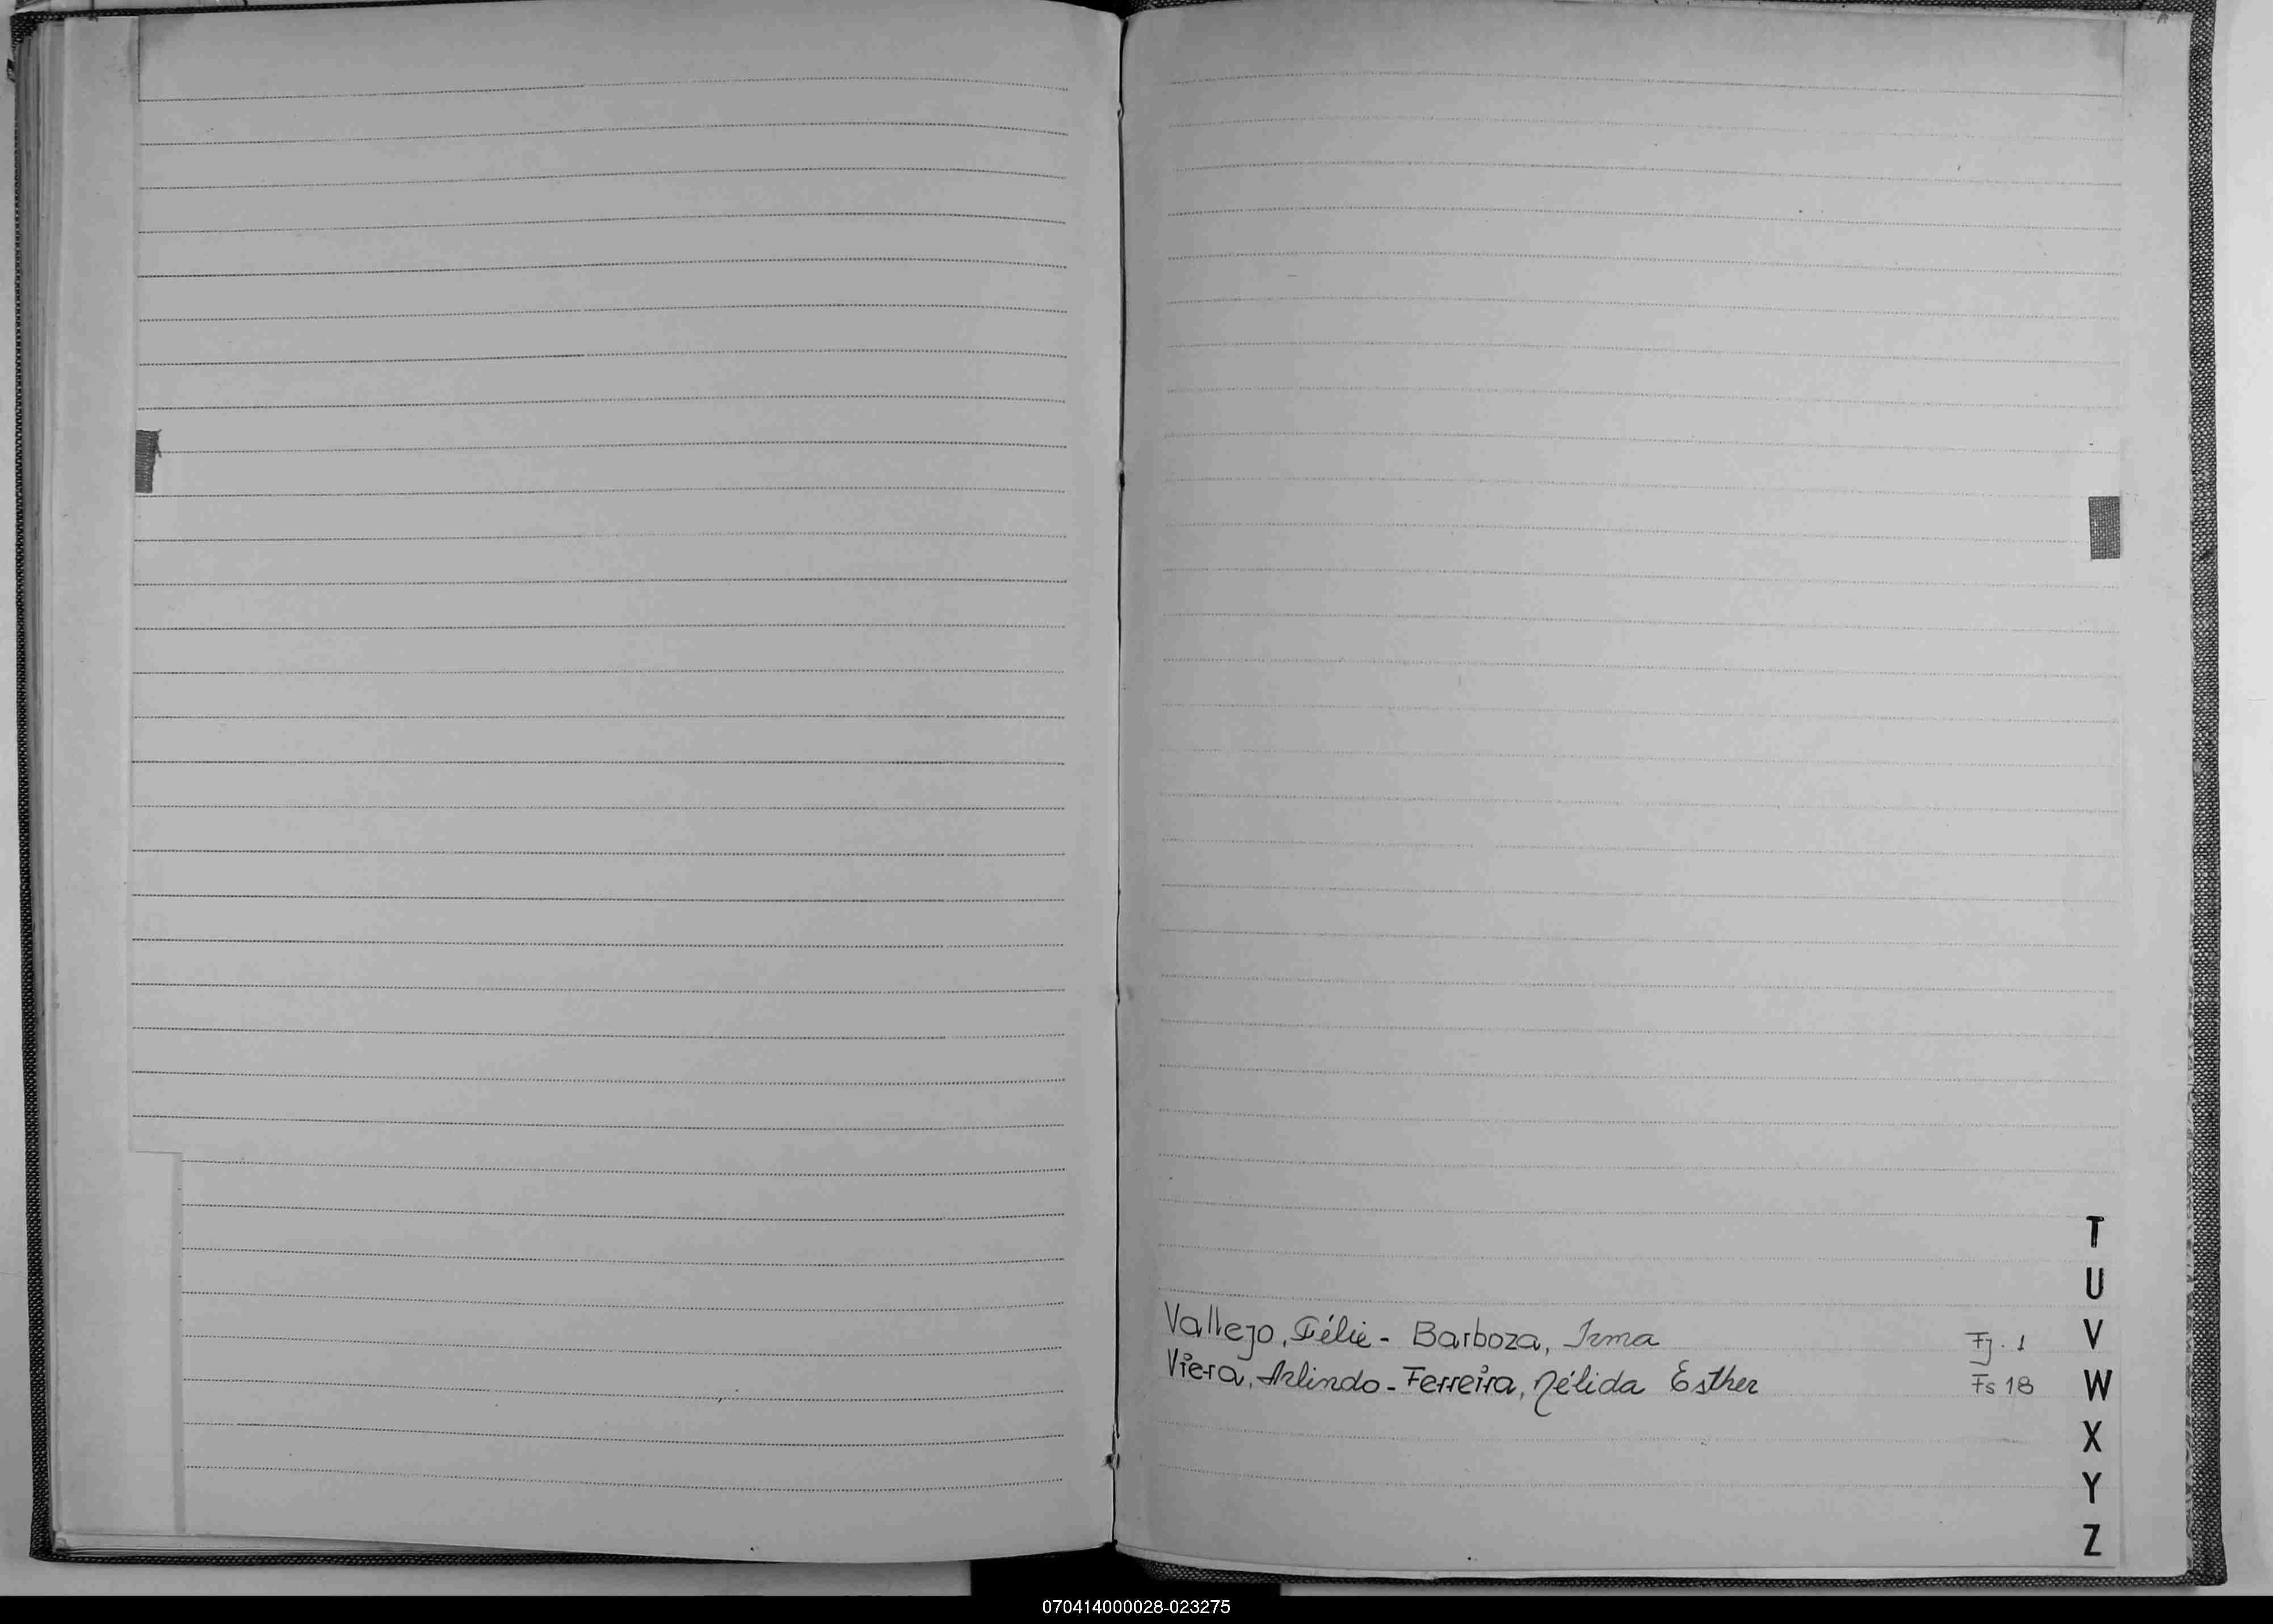 T
U
Vallejo, Félix - Barboza, Irma Fj. 1 V
Viera, Arlindo - Ferreira, Nélida Esther Fs 18 W
X
Y
Z
070414000028-023275